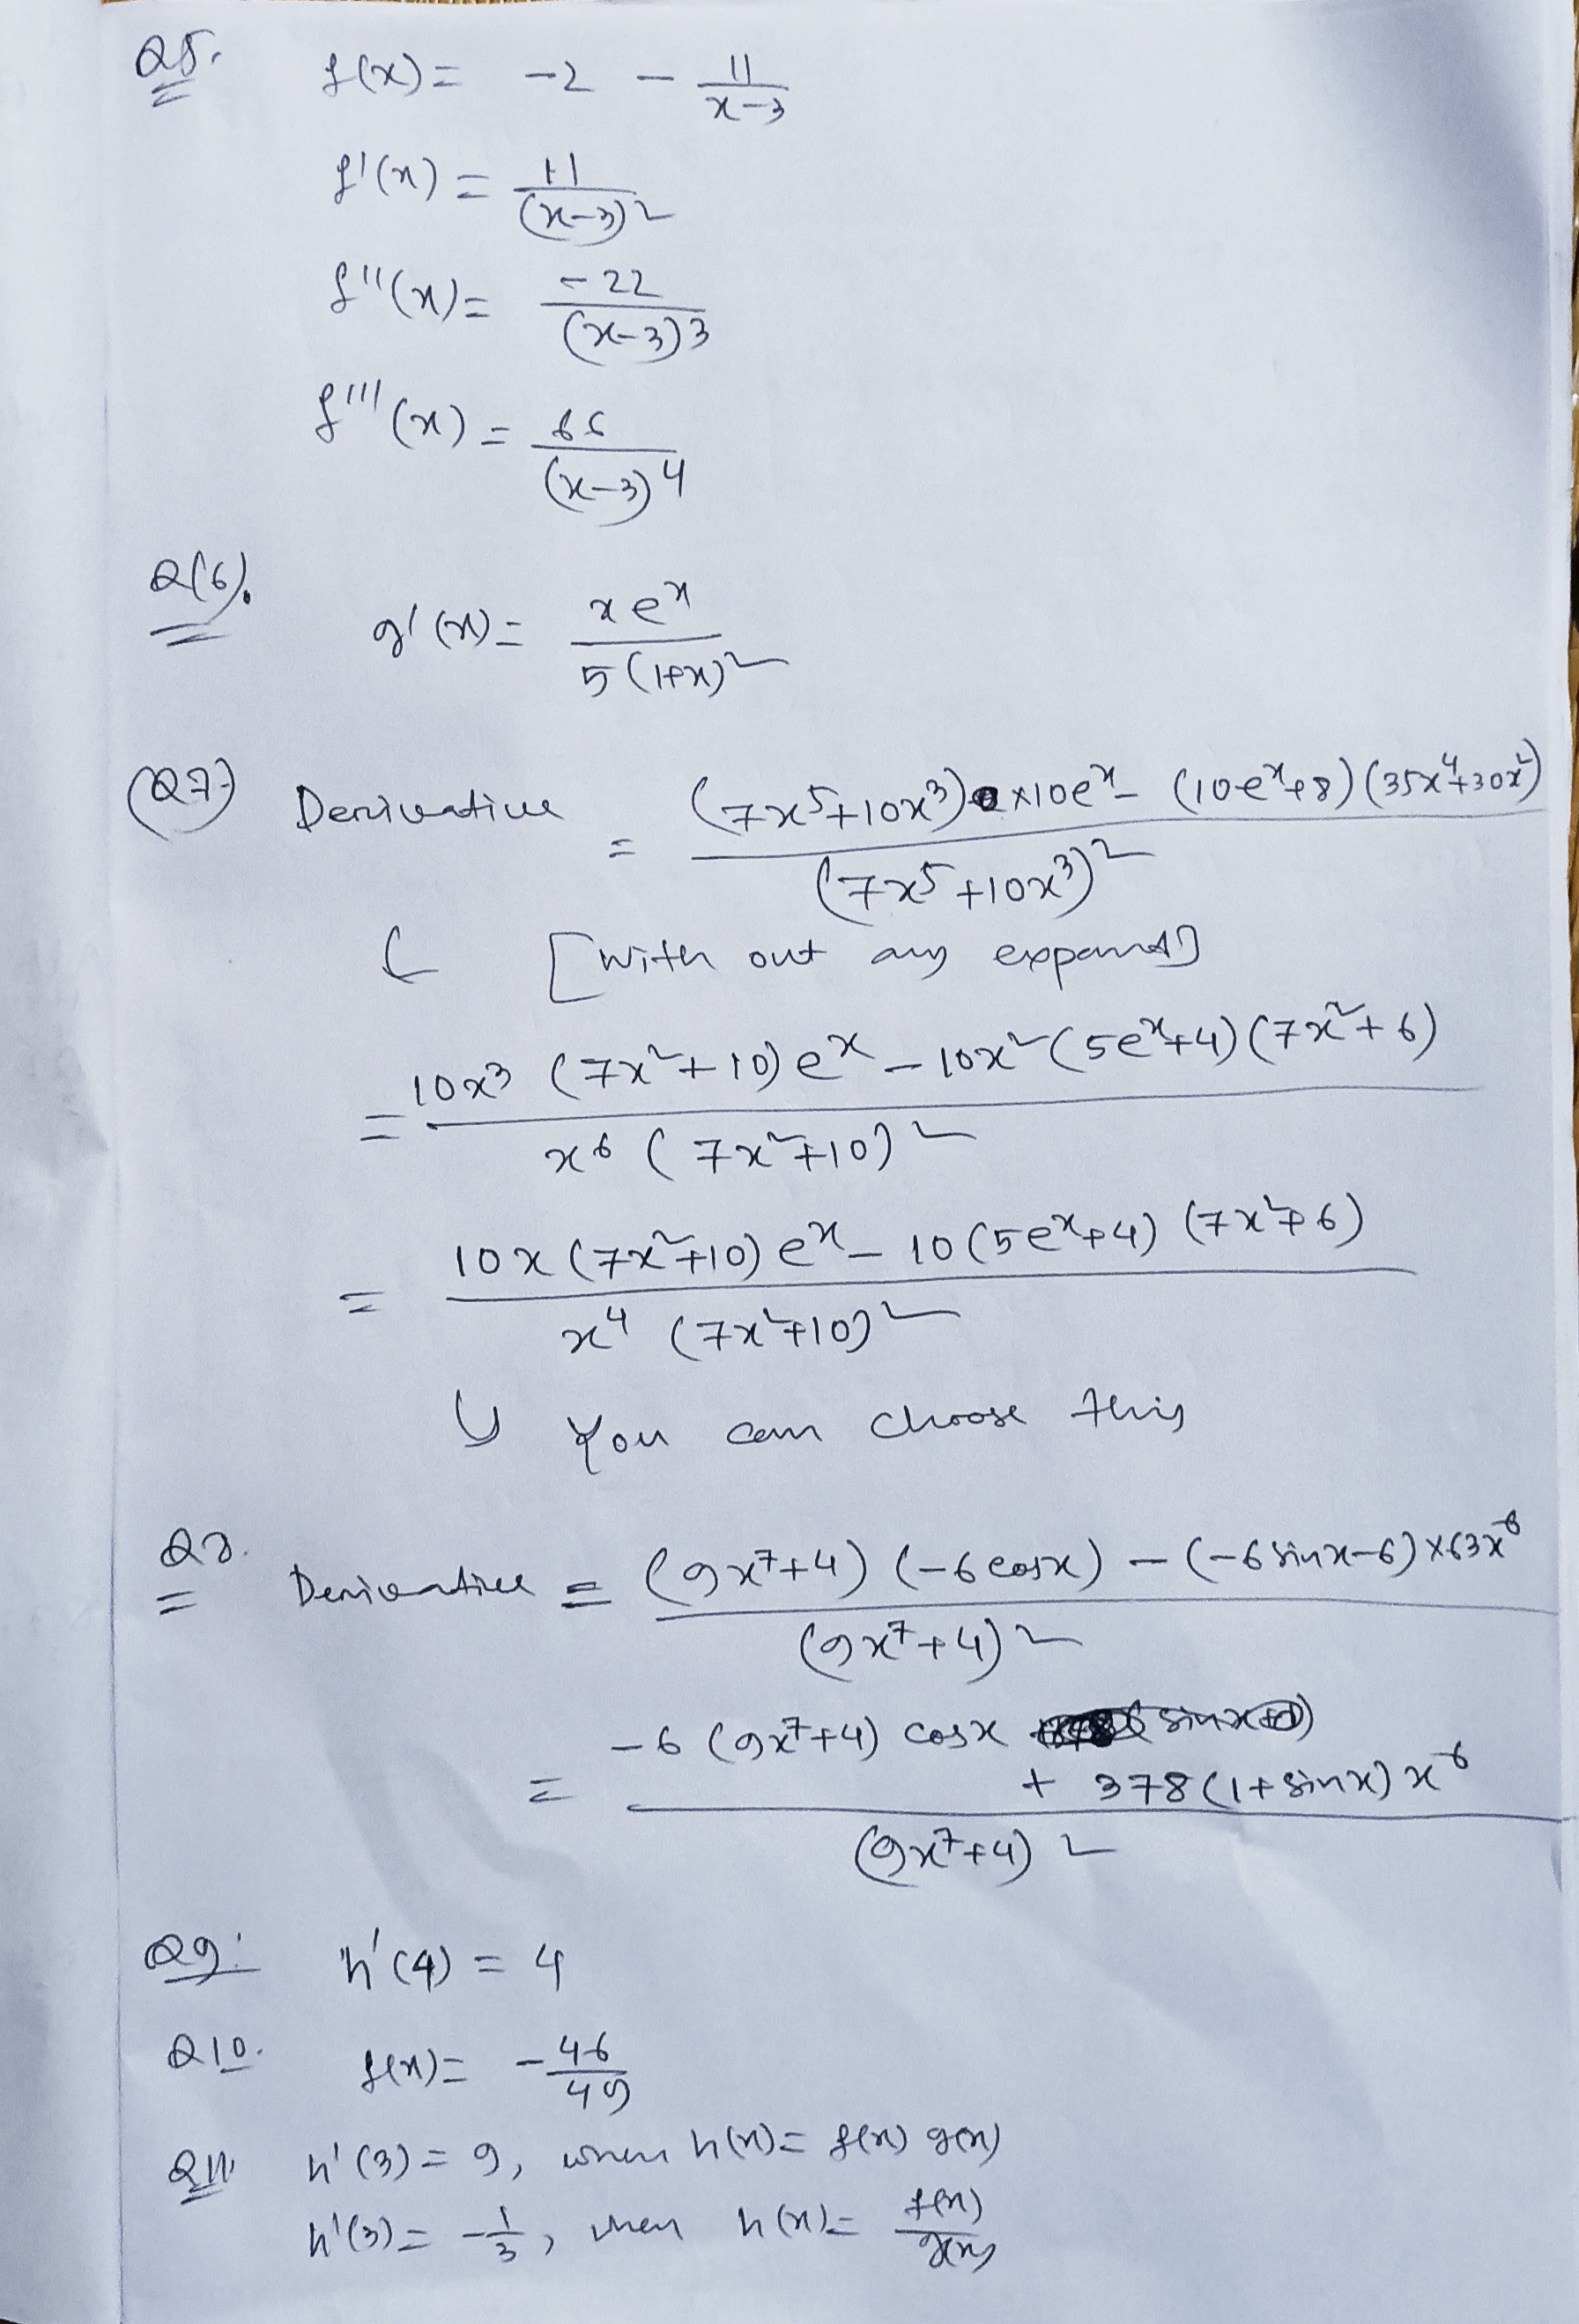 Q5. f(x) = -2 - 11/(x-3)
f'(x) = 11/(x-3)²
f''(x) = -22/(x-3)³
f'''(x) = 66/(x-3)⁴
Q(6). g'(x) = xeˣ/5(1+x)²
(Q7) Derivative = ((7x⁵+10x³)×10eˣ - (10eˣ+8)(35x⁴+30x²))/(7x⁵+10x³)²
[with out any expand]
= (10x³(7x²+10)eˣ - 10x²(5eˣ+4)(7x²+6))/x⁶(7x²+10)²
= (10x(7x²+10)eˣ - 10(5eˣ+4)(7x²+6))/x⁴(7x²+10)²
↳ You can choose this
Q8. Derivative = ((9x⁷+4)(-6cosx) - (-6sinx-6)×63x⁶)/(9x⁷+4)²
= (-6(9x⁷+4)cosx + 378(1+sinx)x⁶)/(9x⁷+4)²
Q9: h'(4) = 4
Q10. f(x) = -46/49
Q11. h'(3) = 9, when h(x) = f(x) g(x)
h'(3) = -1/3, when h(x) = f(x)/g(x)